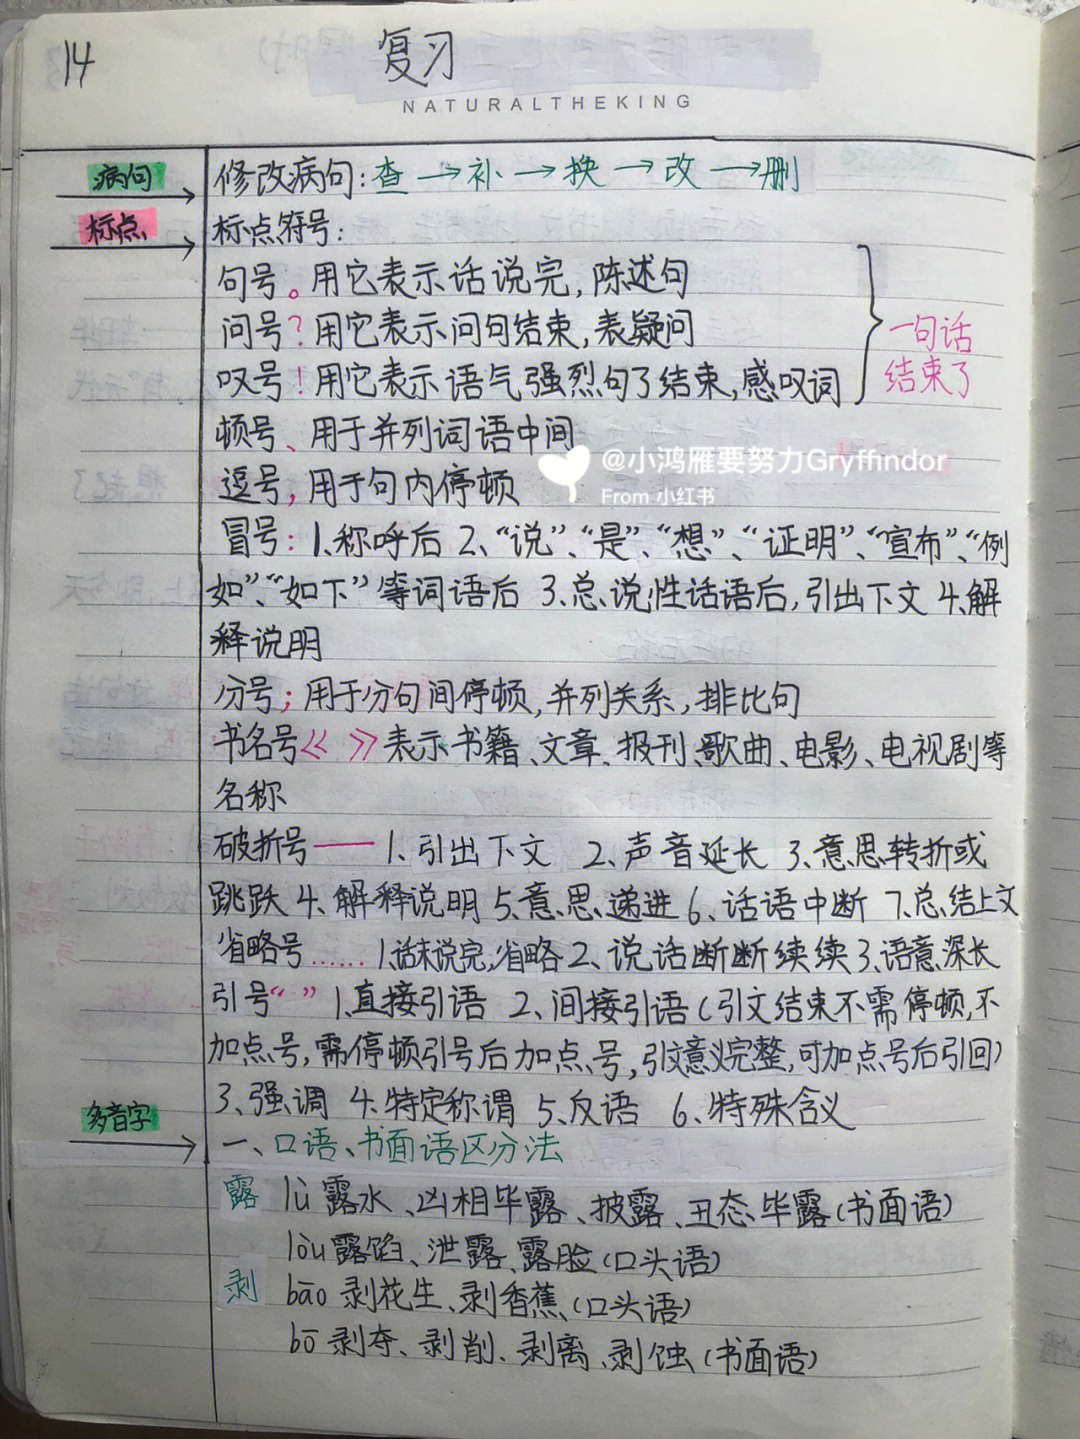 14
复习
NATURALTHEKING
病句
修改病句：查→补→换→改→删
标点
标点符号：
句号。用它表示话说完，陈述句
问号？用它表示问句结束，表疑问
叹号！用它表示语气强烈句子结束，感叹词
一句话
结束了
顿号、用于并列词语中间
@小鸿雁要努力Gryffindor
From 小红书
逗号，用于句内停顿
冒号：1、称呼后 2、“说”、“是”、“想”、“证明”、“宣布”、“例
如”、“如下”等词语后 3、总说性话语后，引出下文 4、解
释说明
分号；用于分句间停顿，并列关系，排比句
书名号《 》表示书籍、文章、报刊、歌曲、电影、电视剧等
名称
破折号—— 1、引出下文 2、声音延长 3、意思转折或
跳跃 4、解释说明 5、意思递进 6、话语中断 7、总结上文
省略号…… 1、话未说完，省略 2、说话断断续续 3、语意深长
引号“ ” 1、直接引语 2、间接引语（引文结束不需停顿，不
加点号，需停顿引号后加点号，引文意义完整，可加点号后引回）
3、强调 4、特定称谓 5、反语 6、特殊含义
多音字
一、口语、书面语区分法
露 lù 露水、凶相毕露、披露、丑态毕露（书面语）
lòu 露馅、泄露、露脸（口头语）
剥 bāo 剥花生、剥香蕉（口头语）
bō 剥夺、剥削、剥离、剥蚀（书面语）